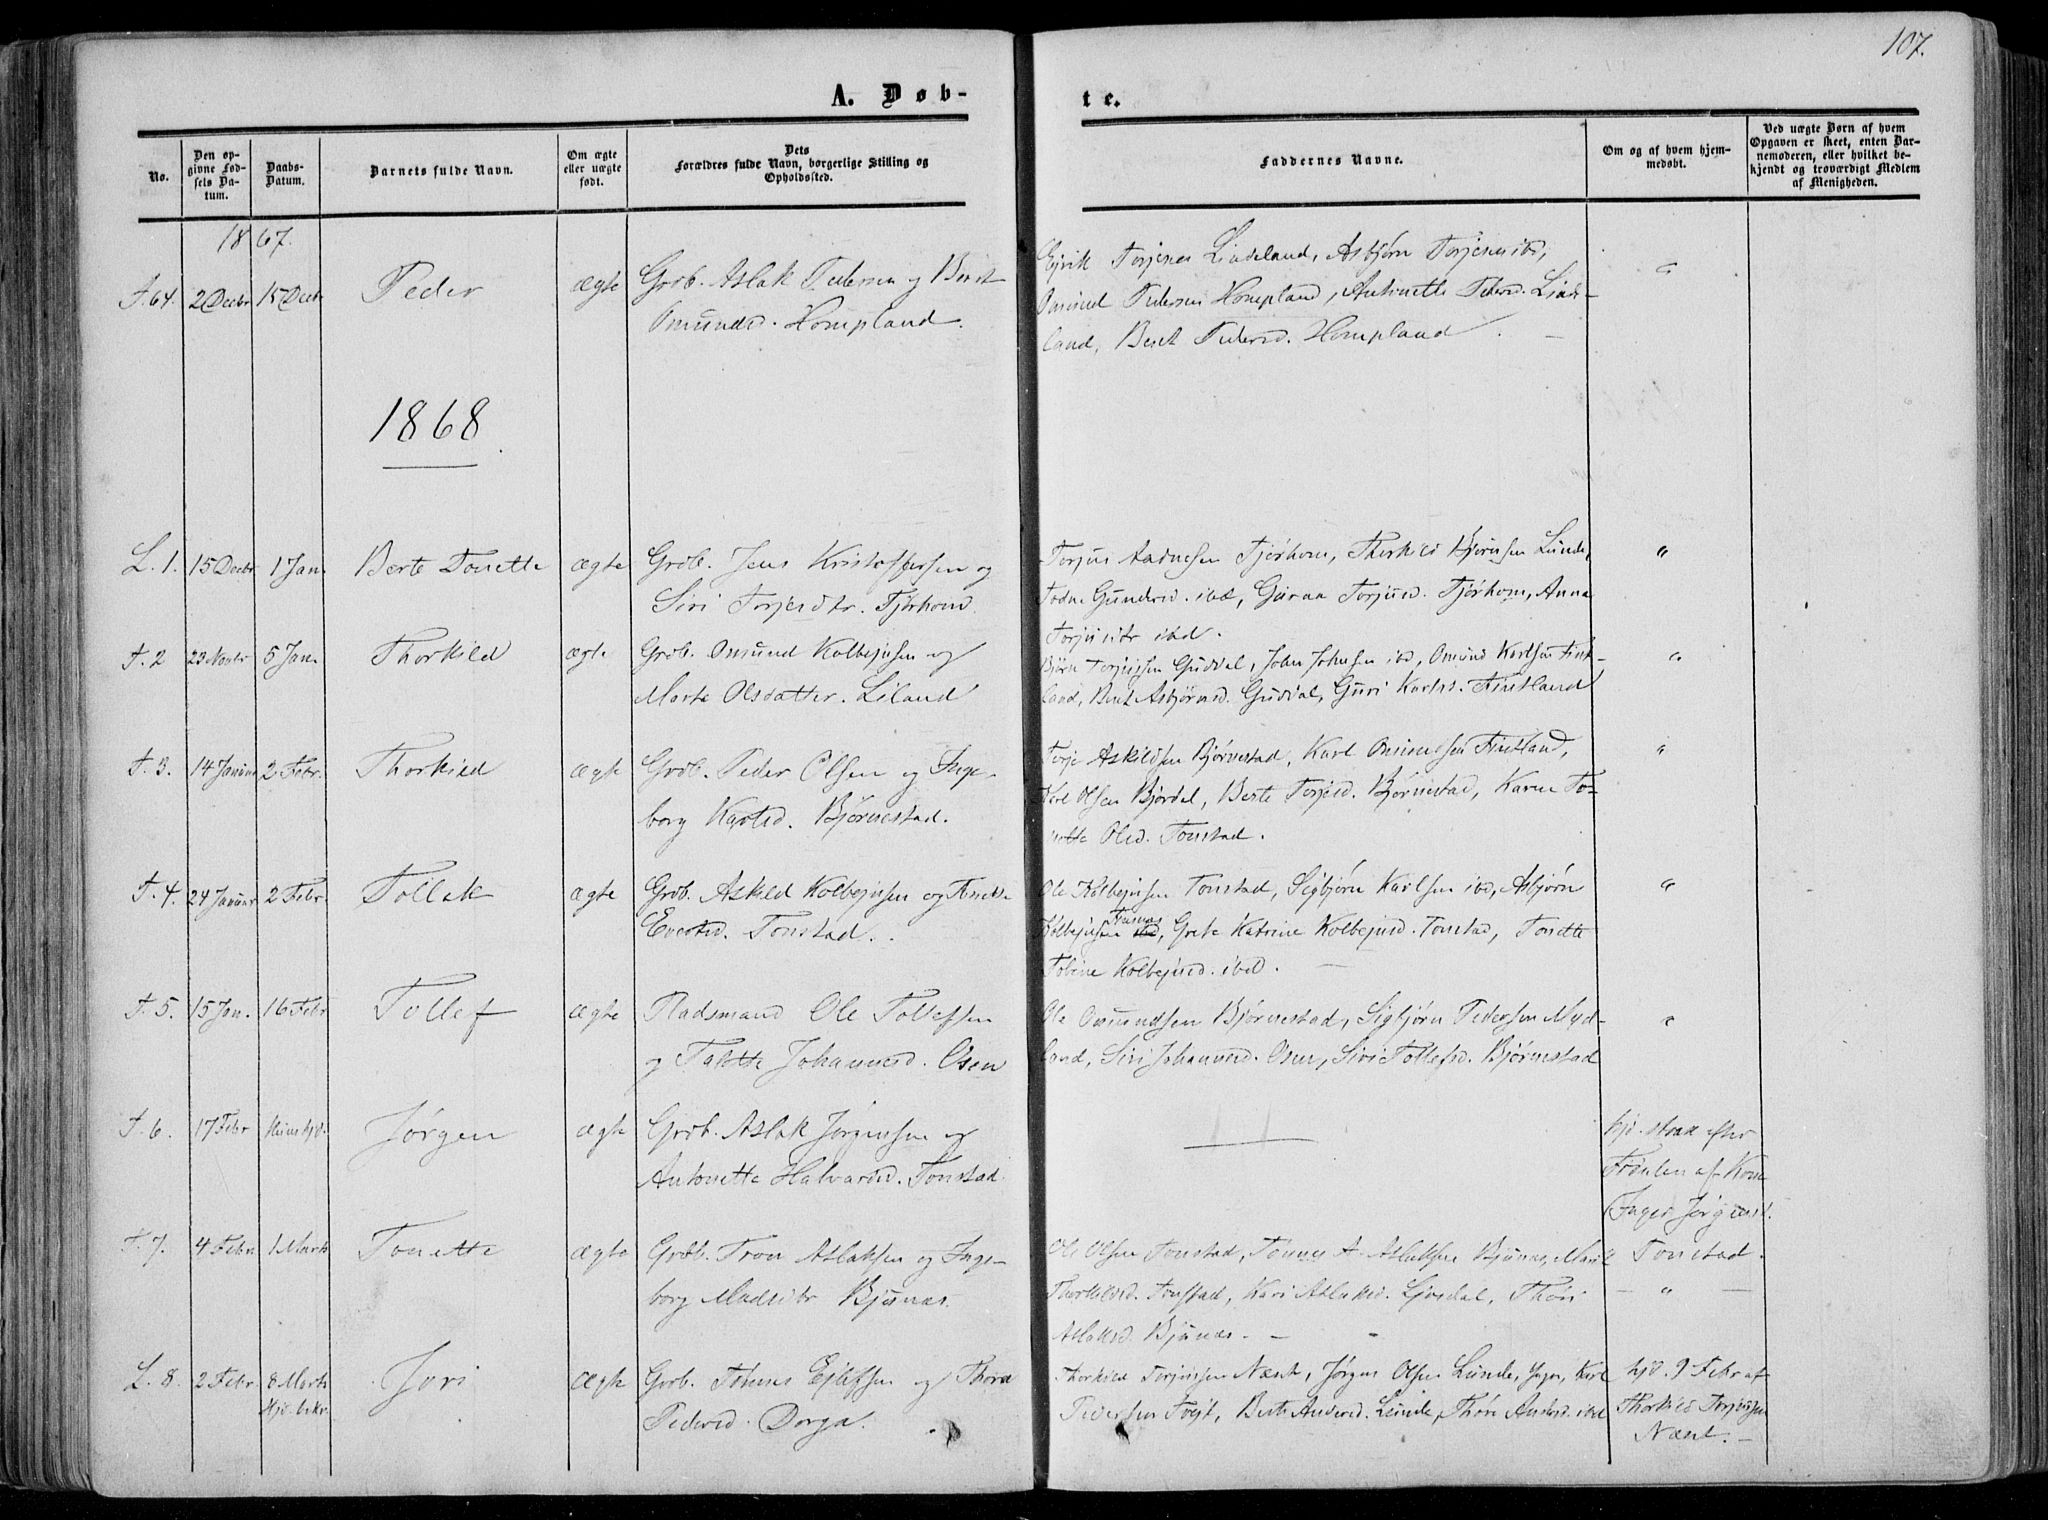 107.
A. Døb-
te.
No.
Den op-
givne Fød-
sels Da-
tum.
Daabs-
Datum.
Barnets fulde Navn.
Om ægte
eller uægte
født.
Dets
Forældres fulde Navn, borgerlige Stilling og
Opholdssted.
Faddernes Navne.
Om og af hvem hjem-
medøbt.
Ved uægte Børn af hvem
Opgaven er skeet, enten Bar-
nemoderen, eller hvilket be-
kjendt og troværdigt Medlem
af Menigheden.
1867.
T. 64. 2 Decbr 15 Decb Peder ægte Grdb. Aslak Pedersen og Berit
Omundsd. Hompland.
Ejvik Torjesen Lindeland, Asbjørn Torjesen ibd,
Omund Pedersen Hompland, Antonette Pedersd. Linde-
land, Berit Pedersd. Hompland. "
1868
L. 1. 15 Decbr 1 Jan. Berte Tonette ægte Grdb. Jens Kristoffersen og
Siri Torjesdtr. Tjørhom.
Torjus Aadnesen Tjørhom, Thorkild Bjørnsen Lunde,
Todne Gundersd. ibd, Guroa Torjusd. Tjørhom, Anna
Torjusdtr ibd. "
T. 2 23 Novbr 5 Jan. Thorkild ægte Grdb. Omund Kolbejnsen og
Marte Olsdatter. Liland
Bjørn Torjussen Guddal, John Johnsen ibd, Omund Karlsen Fint-
land, Berit Asbjørnsd. Guddal, Guri Karlsd. Fintland "
T. 3. 14 Januar 2 Febr. Thorkild ægte Grdb. Peder Olsen og Inge-
borg Karlsd. Bjørnestad.
Torje Askildsen Bjørnestad, Karl Omundsen Fintland,
Karl Olsen Bjørdal, Berte Torjesd. Bjørnestad, Karen To-
nette Olsd. Tonstad. "
T. 4. 24 Januar 2 Febr. Tollak ægte Grdb. Askild Kolbejnsen og Anette
Evertsd. Tonstad.
Ole Kolbejnsen Tonstad, Sigbjørn Karlsen ibd, Asbjørn
Kolbejnsen ibd, Grete Katrine Kolbejnsd. Tonstad, Tonette
Tobine Kolbejnsd. ibd. "
T. 5. 15 Jan. 16 Febr Tollef ægte Radsmand Ole Tollefsen
og Talette Johannesd. Osen
Ole Omundsen Bjørnestad, Sigbjørn Pedersen Myd-
land, Siri Johannesd. Osen, Siri Tollefsd. Bjørnestad "
T. 6. 17 Febr Jørgen ægte Grdb. Aslak Jørgensen og
Antonette Halvorsd. Tonstad.
hjd. strax efter
Fødselen af Kone
Inger Jørgensd.
Tonstad.
T. 7. 4 Febr. 1 Marts Tonette ægte Grdb. Tron Aslaksen og Inge-
borg Madsdtr Bjunes.
Ole Olsen Tonstad, Tønnes A. Aslaksen Bjunes, Marit
Thorkildsd. Tonstad, Kari Aslaksd. Ljosdal, Thori
Aslaksd. Bjunes. — — " —
L. 8. 2 Febr. 8 Marts Jori ægte Grdb. Tønnes Ejlefsen og Thora
Hjd. bekr.
Pedersd. Dorga.
Thorkild Torjussen Næset, Jørgen Olsen Lunde, Karl
Pedersen Tvejt, Berte Andersd. Lunde, Thore Andersd. ibd
hjd. 9 Febr af
Thorkild Torjussen
Næset. —